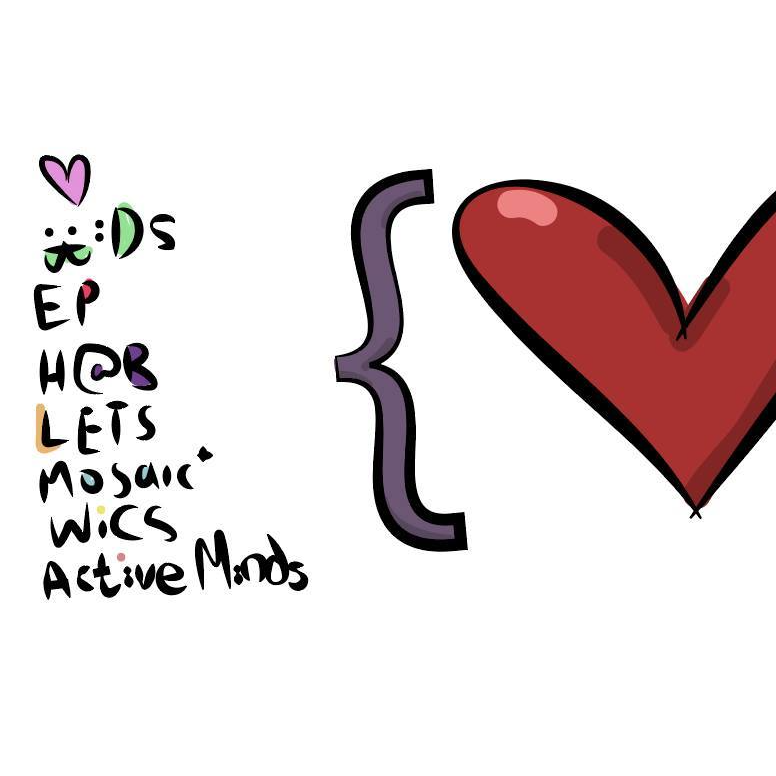 :Ds
EP
H@B
LETS
Mosaic
WiCS
Active Minds
{